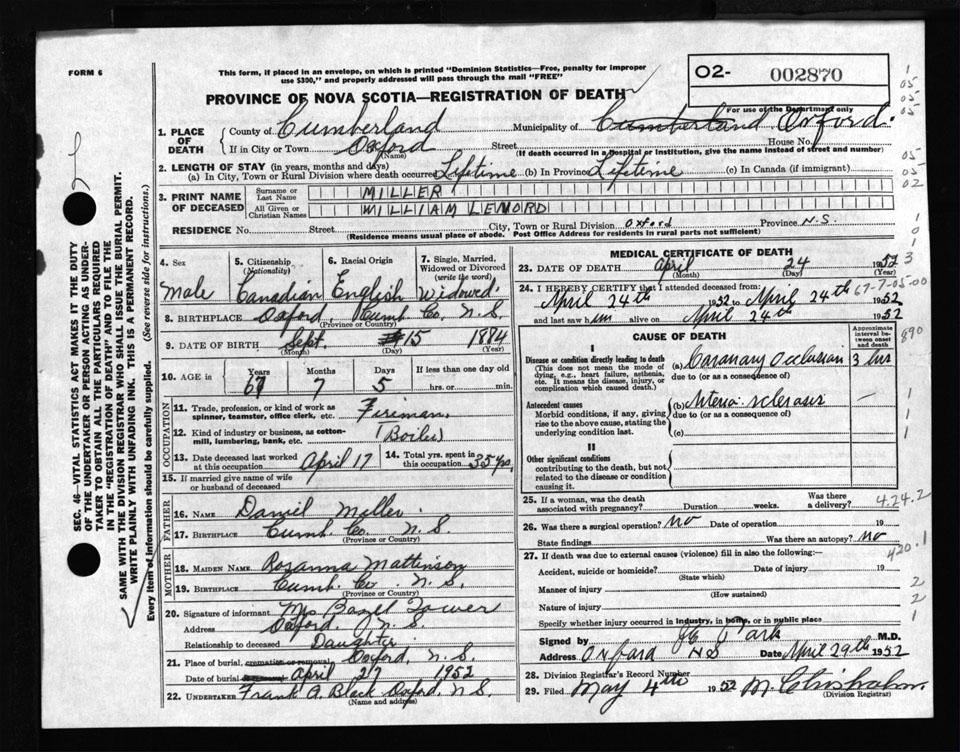 FORM 6
This form, if placed in an envelope, on which is printed "Dominion Statistics—Free, penalty for improper
use $300," and properly addressed will pass through the mail "FREE"
O2- 002870
PROVINCE OF NOVA SCOTIA—REGISTRATION OF DEATH
For use of the Department only
1. PLACE OF DEATH { County of Cumberland Municipality of Cumberland Oxford.
If in City or Town Oxford (Name) Street House No.
(If death occurred in a hospital or institution, give the name instead of street and number)
2. LENGTH OF STAY (in years, months and days)
(a) In City, Town or Rural Division where death occurred Lifetime (b) In Province Lifetime (c) In Canada (if immigrant)
3. PRINT NAME OF DECEASED { Surname or Last Name MILLER
All Given or Christian Names WILLIAM LENORD
RESIDENCE No. Street City, Town or Rural Division Oxford Province N.S.
(Residence means usual place of abode. Post Office Address for residents in rural parts not sufficient)
4. Sex 5. Citizenship (Nationality) 6. Racial Origin 7. Single, Married, Widowed or Divorced (write the word)
Male Canadian English Widowed.
8. BIRTHPLACE Oxford, Cumb. Co. N.S.
(Province or Country)
9. DATE OF BIRTH Sept. 15 1884
(Month) (Day) (Year)
10. AGE is { Years Months Days If less than one day old
67 7 5 hrs. or min.
OCCUPATION
11. Trade, profession, or kind of work as spinner, teamster, office clerk, etc. Fireman.
12. Kind of industry or business, as cotton-mill, lumbering, bank, etc. (Boiler)
13. Date deceased last worked at this occupation April 17 14. Total yrs. spent in this occupation 35 yrs.
15. If married give name of wife or husband of deceased
FATHER
16. NAME Daniel Miller.
17. BIRTHPLACE Cumb. Co. N.S.
(Province or Country)
MOTHER
18. MAIDEN NAME Rosanna Mattinson
19. BIRTHPLACE Cumb. Co. N.S.
(Province or Country)
20. Signature of informant Mrs Bazel Tower
Address Oxford, N.S.
Relationship to deceased Daughter.
21. Place of burial, cremation or removal, Oxford, N.S.
Date of burial April 27 1952
22. UNDERTAKER Frank A. Black Oxford, N.S.
(Name and address)
MEDICAL CERTIFICATE OF DEATH
23. DATE OF DEATH April 24 1952
(Month) (Day) (Year)
24. I HEREBY CERTIFY that I attended deceased from:
April 24th 1952 to April 24th 1952
and last saw him alive on April 24th 1952
67-7-05-00
CAUSE OF DEATH
Approximate interval between onset and death
I
Disease or condition directly leading to death
(This does not mean the mode of dying, e.g., heart failure, asthenia, etc. It means the disease, injury, or complication which caused death.)
(a) Coronary Occlusion 3 hrs
due to (or as a consequence of)
Antecedent causes
Morbid conditions, if any, giving rise to the above cause, stating the underlying condition last.
(b) Arterio-sclerosis —
due to (or as a consequence of)
(c)
II
Other significant conditions
contributing to the death, but not related to the disease or condition causing it.
25. If a woman, was the death associated with pregnancy? Duration weeks. Was there a delivery?
26. Was there a surgical operation? No Date of operation 19
State findings Was there an autopsy? No
27. If death was due to external causes (violence) fill in also the following:—
Accident, suicide or homicide? Date of injury 19
(State which)
Manner of injury
(How sustained)
Nature of injury
Specify whether injury occurred in industry, in home, or in public place
Signed by M.D.
Address Oxford NS Date April 29th 1952
28. Division Registrar's Record Number
29. Filed May 4th 1952 M. Chisholm
(Division Registrar)
4.24.2
420.1
890
SEC. 46—VITAL STATISTICS ACT MAKES IT THE DUTY
OF THE UNDERTAKER OR PERSON ACTING AS UNDER-
TAKER TO OBTAIN ALL THE PARTICULARS REQUIRED
IN THE "REGISTRATION OF DEATH" AND TO FILE THE
SAME WITH THE DIVISION REGISTRAR WHO SHALL ISSUE THE BURIAL PERMIT.
WRITE PLAINLY WITH UNFADING INK. THIS IS A PERMANENT RECORD.
Every item of information should be carefully supplied. (See reverse side for instructions.)